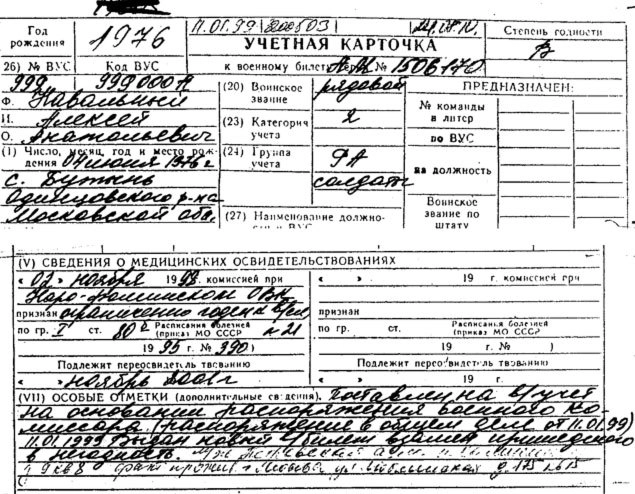 Год рождения
1976
11.01.99
УЧЕТНАЯ КАРТОЧКА
к военному билету АМ № 1506170
Степень годности
В
26) № ВУС Код ВУС
999 999000А
Ф. Навальный
И. Алексей
О. Анатольевич
(1) Число, месяц, год и место рождения 04 июня 1976 г
с. Бутынь
Одинцовского р-на
Московской обл.
(20) Воинское звание рядовой
(23) Категория учета 2
(24) Группа учета РА
солдаты
(27) Наименование должно-
ПРЕДНАЗНАЧЕН:
№ команды и литер
по ВУС
на должность
Воинское звание по штату
(V) СВЕДЕНИЯ О МЕДИЦИНСКИХ ОСВИДЕТЕЛЬСТВОВАНИЯХ
« 02 » ноября 1998. комиссией при
Наро-Фоминском ОВК
признан ограниченно годен к в/сл
по гр. I ст. 80 Расписания болезней (приказ МО СССР
1995 г. № 390)
Подлежит переосвидетельствованию
« » ноябрь 2001 г
« » 19 г. комиссией при
признан
по гр. ст. Расписания болезней (приказ МО СССР
19 г. № )
Подлежит переосвидетельствованию
« » 19 г.
(VII) ОСОБЫЕ ОТМЕТКИ (дополнительные сведения). Поставлен на в/учет
на основании распоряжения военного ко-
миссара (распоряжение в общем деле от 11.01.99)
11.01.1999 Выдан новый в/билет взамен пришедшего
в негодность.
факт прожив г Москва ул. Люблинская д. 175